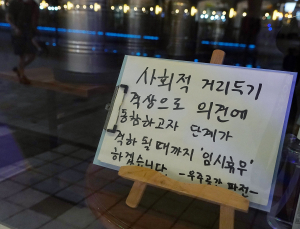 사회적 거리두기
격상으로 의견에
동참하고자 단계가
격하 될 때까지 '임시휴무'
하겠습니다.
-우주공간 파전-